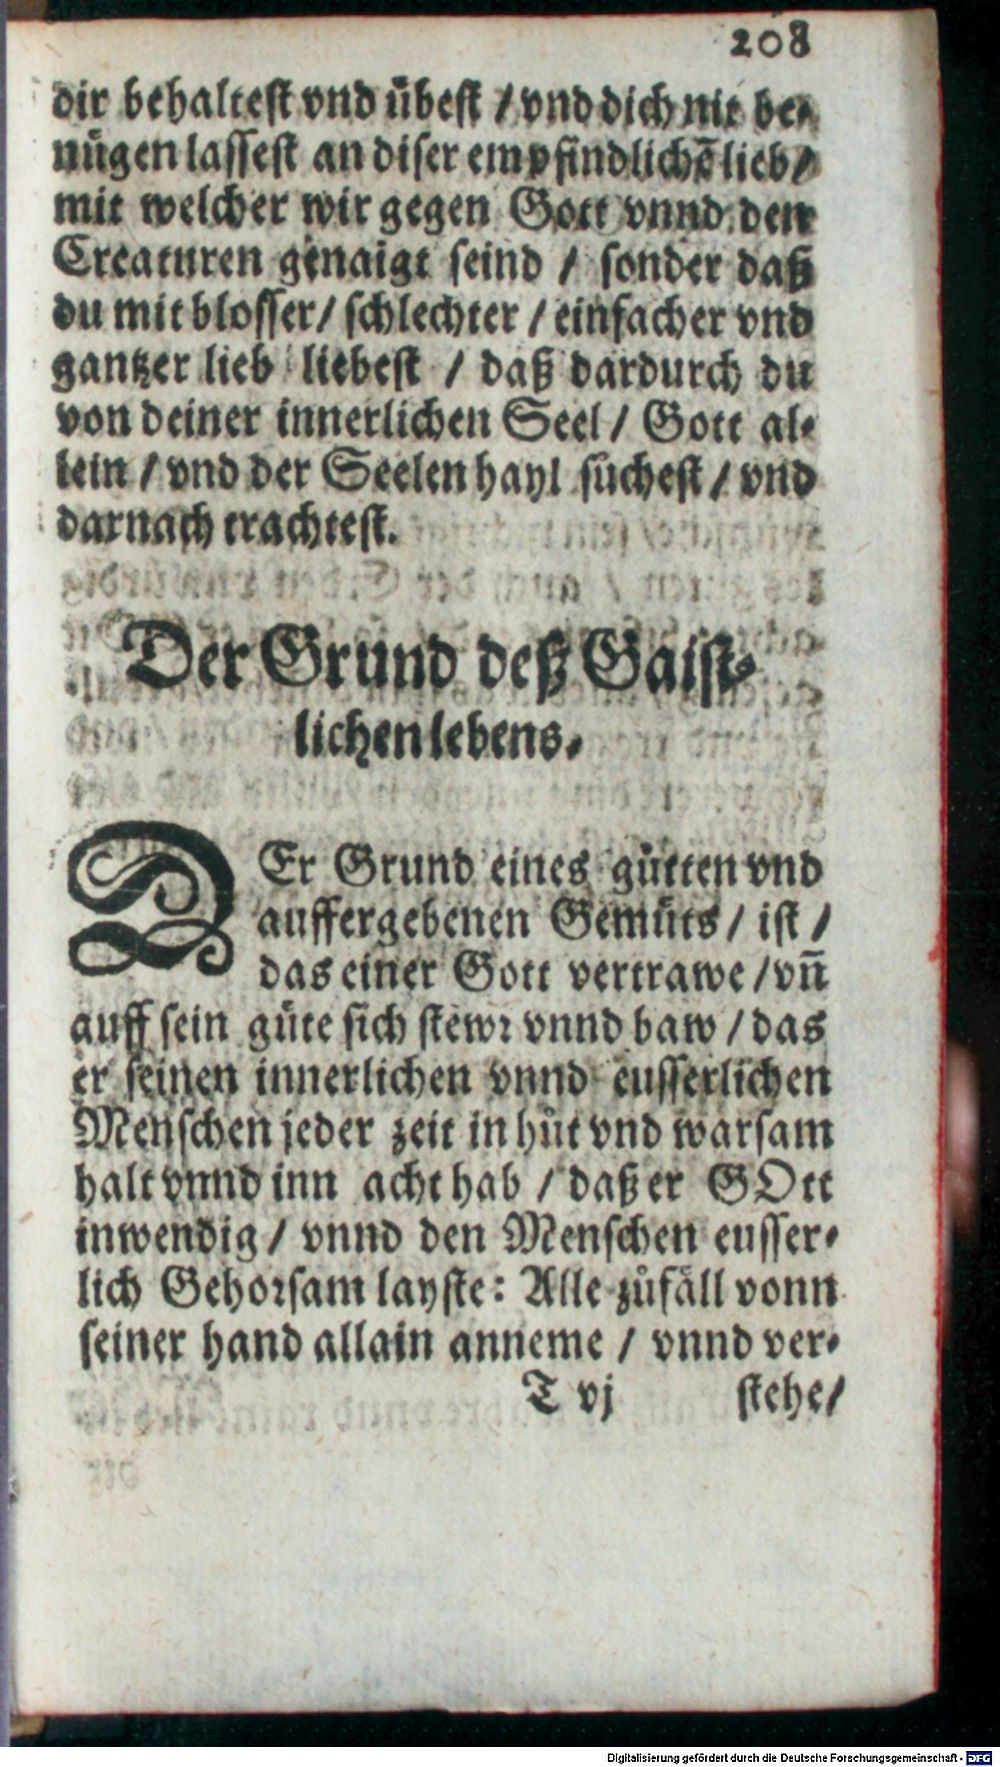 208
dir behaltest vnd uͤbest / vnd dich nit be-
nuͤgen lassest an diser empfindlichē lieb /
mit welcher wir gegen Gott vnnd den
Creaturen genaigt seind / sonder daß
du mit blosser / schlechter / einfacher vnd
gantzer lieb liebest / daß dardurch du
von deiner innerlichen Seel / Gott al-
lein / vnd der Seelen hayl suͤchest / vnd
darnach trachtest.
Der Grund deß Gaist-
lichen lebens.
DEr Grund eines guͤtten vnd
auffergebenen Gemuͤts / ist /
das einer Gott vertrawe / vn̄
auff sein guͤte sich stewr vnnd baw / das
er seinen innerlichen vnnd eusserlichen
Menschen jeder zeit in huͤt vnd warsam
halt vnnd inn acht hab / daß er GOtt
inwendig / vnnd den Menschen eusser-
lich Gehorsam layste: Alle zuͦfaͤll vonn
seiner hand allain anneme / vnnd ver-
T vj stehe /
Digitalisierung gefördert durch die Deutsche Forschungsgemeinschaft - DFG